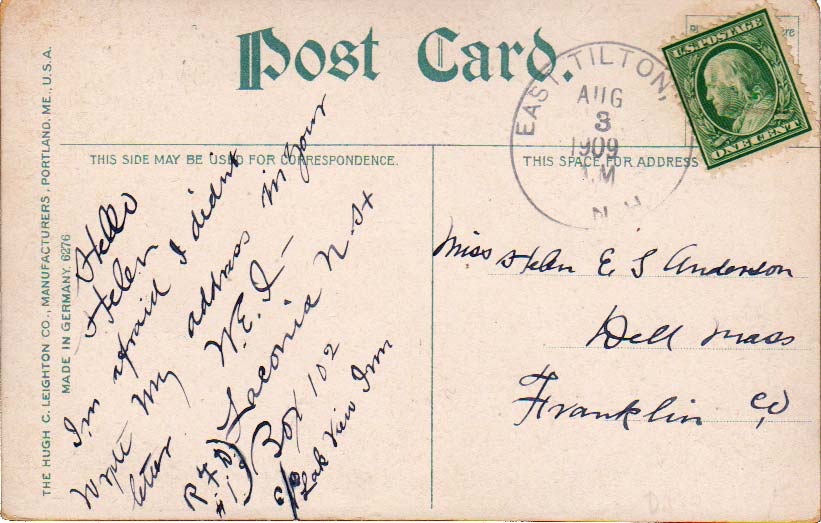 Post Card.
THE HUGH C. LEIGHTON CO., MANUFACTURERS, PORTLAND, ME., U.S.A.
MADE IN GERMANY. 6276
THIS SIDE MAY BE USED FOR CORRESPONDENCE.
THIS SPACE FOR ADDRESS
EAST TILTON,
AUG
3
1909
M
N.H.
U.S. POSTAGE
ONE CENT
Hello
Helen
I'm afraid I didn't
write my address in your
letter. W.E.I-
R.F.D. Laconia N H
#1 Box 102
c/o Lake View Inn
Miss Helen E S Anderson
Dell Mass
Franklin Co